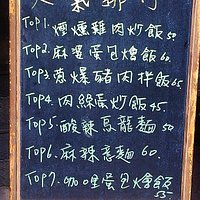 人氣排行
Top1.煙燻雞肉炒飯50
Top2.麻婆蛋包燴飯60
Top3.蔥爆豬肉拌飯65
Top4.肉絲蛋炒飯45
Top5.酸辣烏龍麵50
Top6.麻辣意麵60.
Top7.咖哩蛋包燴飯55